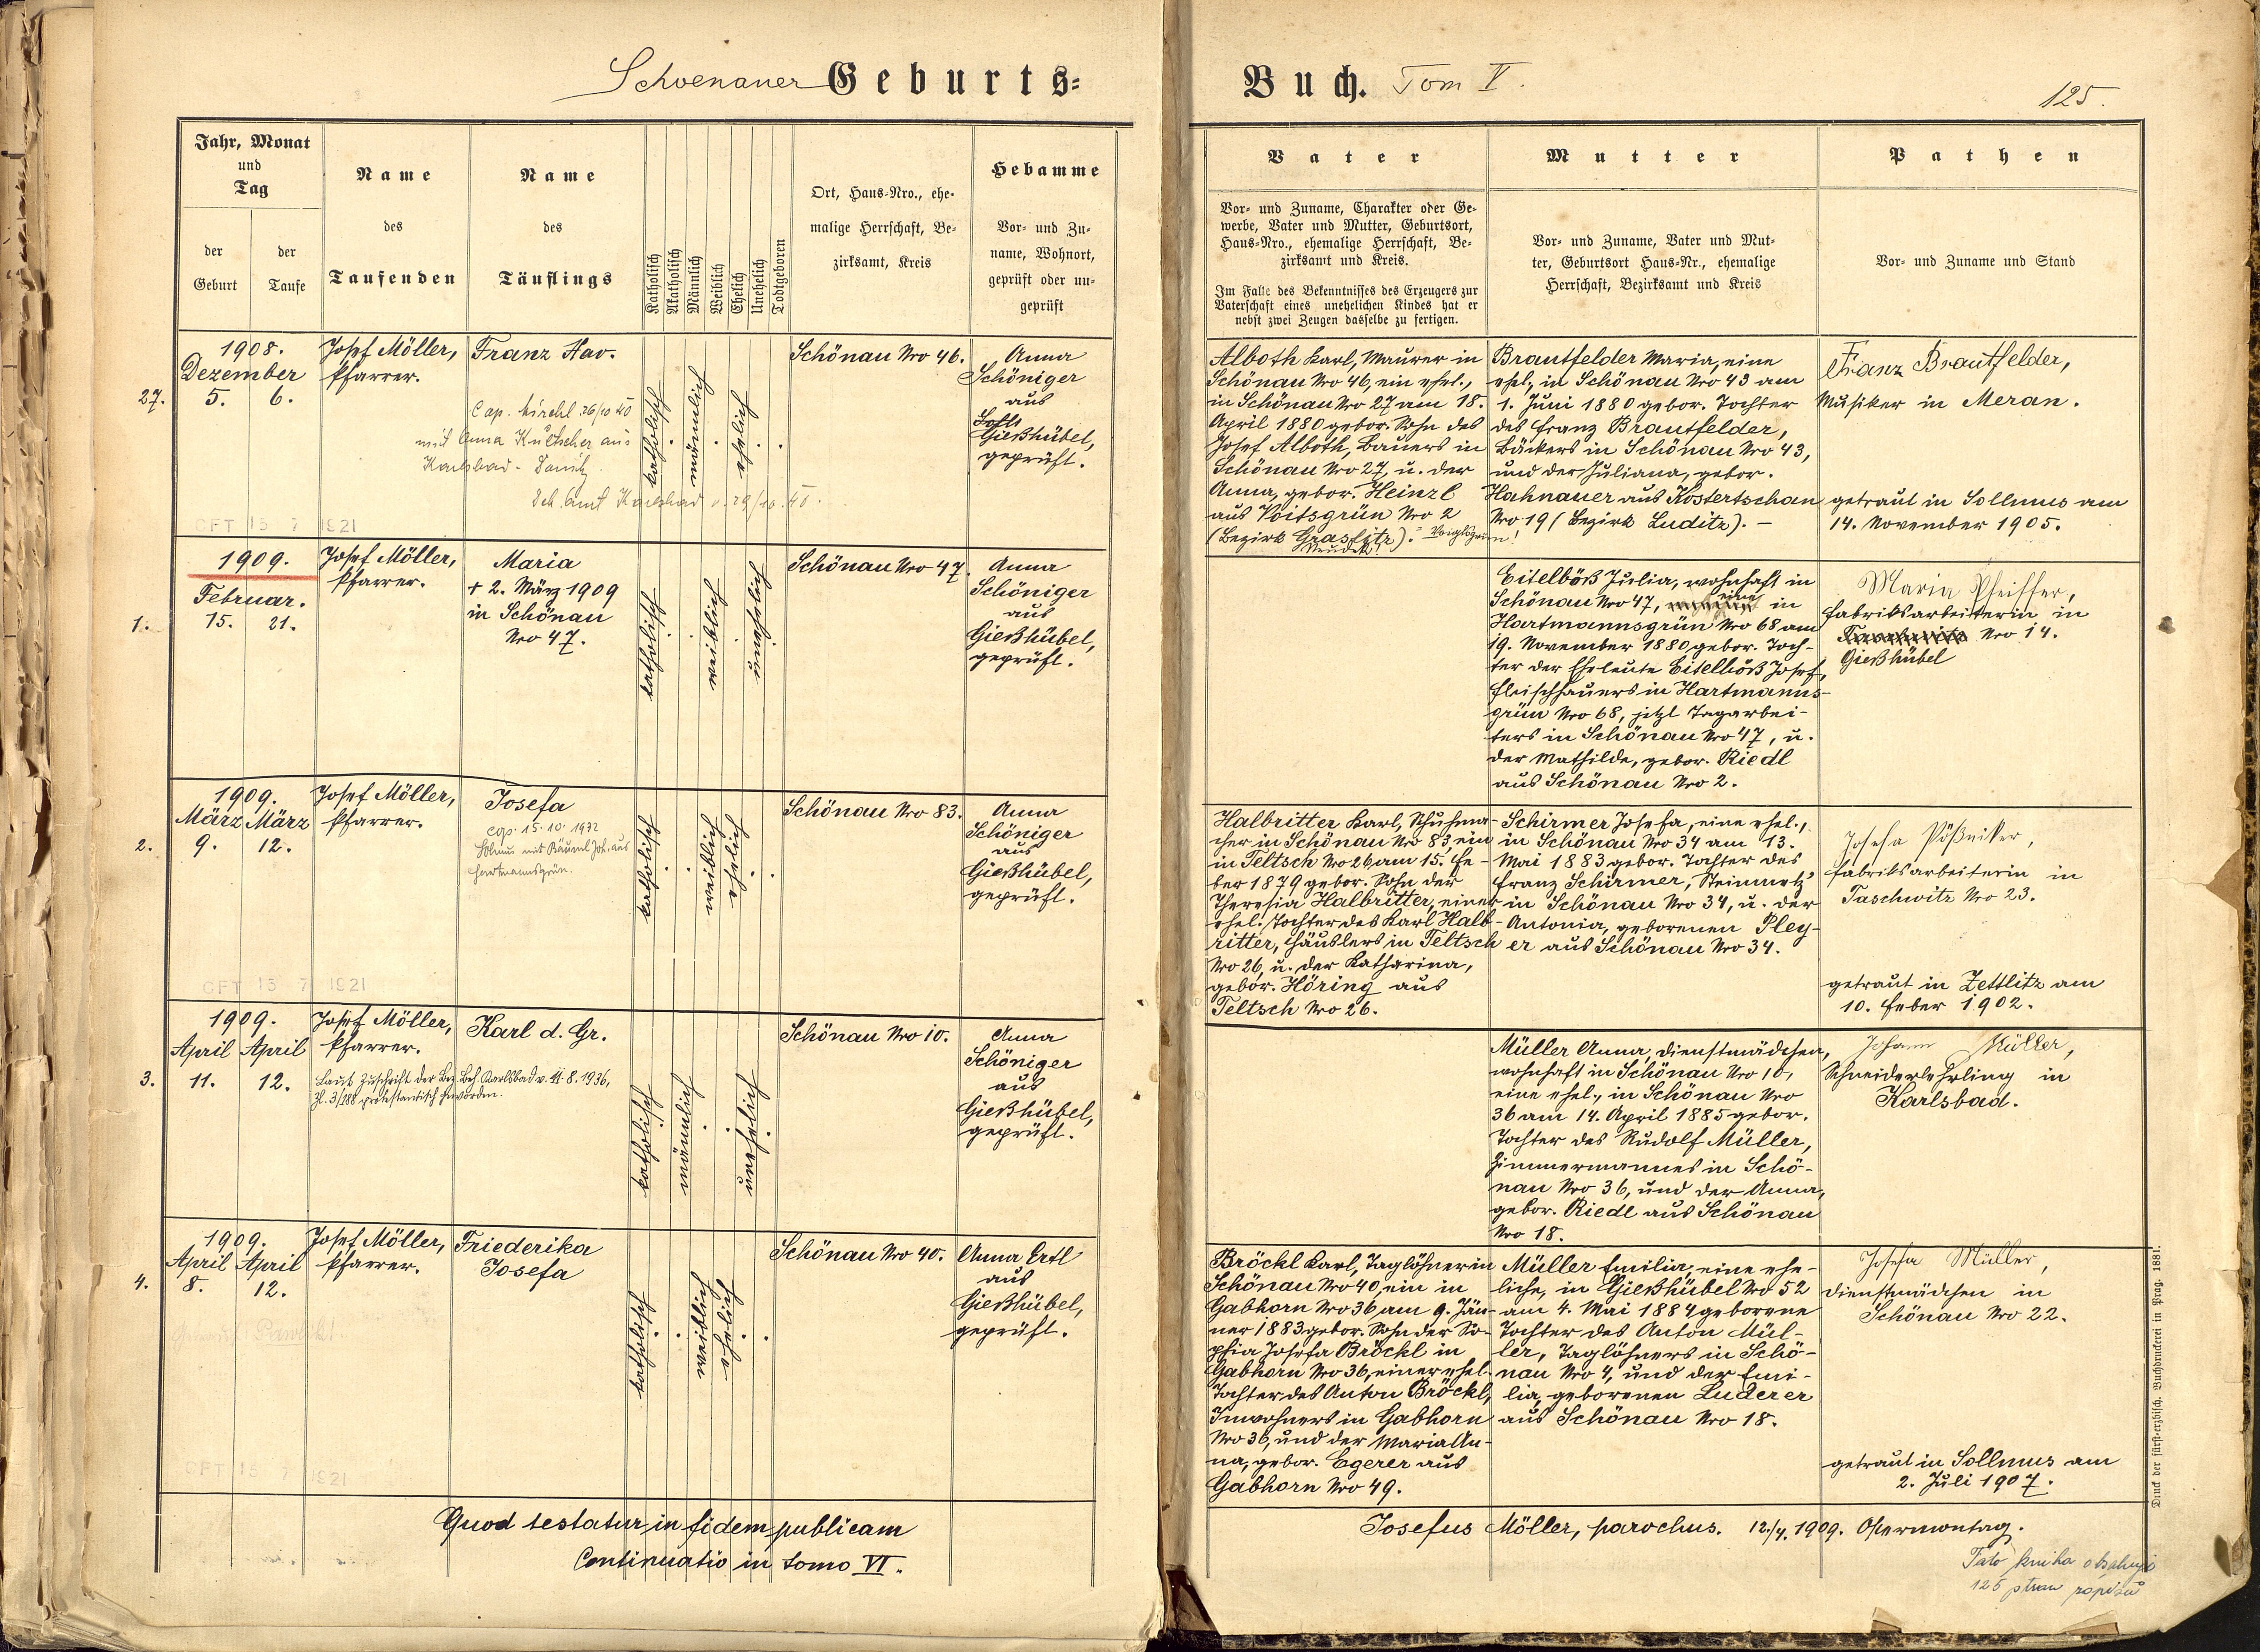 Schoenauer Geburts=
Buch. Tom V.
125.
Jahr, Monat
und
Tag
der
Geburt
der
Taufe
Name
des
Taufenden
Name
des
Täuflings
Katholisch
Akatholisch
Männlich
Weiblich
Ehelich
Unehelich
Todtgeboren
Ort, Haus-Nro., ehe-
malige Herrschaft, Be-
zirksamt, Kreis
Hebamme
Vor- und Zu-
name, Wohnort,
geprüft oder un-
geprüft
Vater
Vor- und Zuname, Charakter oder Ge-
werbe, Vater und Mutter, Geburtsort,
Haus-Nro., ehemalige Herrschaft, Be-
zirksamt und Kreis.
Im Falle des Bekenntnisses des Erzeugers zur
Vaterschaft eines unehelichen Kindes hat er
nebst zwei Zeugen dasselbe zu fertigen.
Mutter
Vor- und Zuname, Vater und Mut-
ter, Geburtsort Haus-Nr., ehemalige
Herrschaft, Bezirksamt und Kreis
Pathen
Vor- und Zuname und Stand
27.
1908.
Dezember
5. 6.
Josef Möller,
Pfarrer.
Franz Xav.
Cop. Kirchl. 26/10 40
mit Anna
aus
Karlsbad -
Karlsbad v. 29/10. 40.
CFT 15 7 1921
katholisch
männlich
ehelich
Schönau Nro 46.
Anna
Schöniger
aus
Gießhübel,
geprüft.
Alboth Karl, Maurer in
Schönau Nro 46, ein ehel.,
in Schönau Nro 27 am 18.
April 1880 gebor. Sohn des
Josef Alboth, Bauers in
Schönau Nro 27, u. der
Anna, gebor. Heinzl
aus Voitsgrün Nro 2
(Bezirk Graslitz).
Neudek!
Brautfelder Maria, eine
ehel., in Schönau Nro 43 am
1. Juni 1880 gebor. Tochter
des Franz Brautfelder,
Bäckers in Schönau Nro 43,
und der Juliana, gebor.
Hahnauer aus Kostertschan
Nro 19 (Bezirk Luditz). –
Franz Brautfelder,
Musiker in Meran.
getraut in Sollmus am
14. November 1905.
1.
1909.
Februar.
15. 21.
Josef Möller,
Pfarrer.
Maria
+ 2. März 1909
in Schönau
Nro 47.
katholisch
weiblich
unehelich
Schönau Nro 47.
Anna
Schöniger
aus
Gießhübel,
geprüft.
Eitelböß Julia, wohnhaft in
Schönau Nro 47, eine in
Hartmannsgrün Nro 68 am
19. November 1880 gebor. Toch-
ter der Eheleute Eitelböß Josef,
Fleischhauers in Hartmanns-
grün Nro 68, jetzt Tagarbei-
ters in Schönau Nro 47, u.
der Mathilde, gebor. Riedl
aus Schönau Nro 2.
Maria Pfeiffer,
Fabriksarbeiterin in
Nro 14.
Gießhübel
2.
1909.
März März
9. 12.
Josef Möller,
Pfarrer.
Josefa
cop. 15. 10. 1932
Sollmus mit Bäuml Joh. aus
Hartmannsgrün.
CFT 15 7 1921
katholisch
weiblich
ehelich
Schönau Nro 83.
Anna
Schöniger
aus
Gießhübel,
geprüft.
Halbritter Karl, Schuhma-
cher in Schönau Nro 83, ein
in Teltsch Nro 26, am 15. Fe-
ber 1879 gebor. Sohn der
Theresia Halbritter, einer
ehel. Tochter des Karl Halb-
ritter, Häuslers in Teltsch
Nro 26, u. der Katharina,
gebor. Höring aus
Teltsch Nro 26.
Schirmer Josefa, eine ehel.,
in Schönau Nro 34 am 13.
Mai 1883 gebor. Tochter des
Franz Schirmer, Steinmetz'
in Schönau Nro 34, u. der
Antonia, geborenen Pley-
er aus Schönau Nro 34.
Josefa Pößniker,
Fabriksarbeiterin in
Taschwitz Nro 23.
getraut in Zettlitz am
10. Feber 1902.
3.
1909.
April April
11. 12.
Josef Möller,
Pfarrer.
Laut Zuschrift der Bez. Beh. Karlsbad v. 11. 8. 1936,
Zl. 3/188 protestantisch geworden.
Karl d. Gr.
katholisch
männlich
unehelich
Schönau Nro 10.
Anna
Schöniger
aus
Gießhübel,
geprüft.
Müller Anna, Dienstmädchen,
wohnhaft in Schönau Nro 10,
eine ehel., in Schönau Nro
36 am 14. April 1885 gebor.
Tochter des Rudolf Müller,
Zimmermannes in Schö-
nau Nro 36, und der Anna,
gebor. Riedl aus Schönau
Nro 18.
Johann Müller,
Schneiderlehrling in
Karlsbad.
4.
1909.
April April
8. 12.
Josef Möller,
Pfarrer.
Friederika
Josefa
CFT 15 7 1921
katholisch
weiblich
ehelich
Schönau Nro 40.
Anna Ertl
aus
Gießhübel,
geprüft.
Bröckl Karl, Taglöhner in
Schönau Nro 40, ein in
Gabhorn Nro 36 am 9. Jän-
ner 1883 gebor. Sohn der So-
phia Josefa Bröckl in
Gabhorn Nro 36, einer ehel.
Tochter des Anton Bröckl,
Inwohners in Gabhorn
Nro 36, und der Maria An-
na, gebor. Egerer aus
Gabhorn Nro 49.
Müller Emilia, eine ehe-
liche, in Gießhübel Nro 52
am 4. Mai 1884 geborene
Tochter des Anton Mül-
ler, Taglöhners in Schö-
nau Nro 4, und der Emi-
lia, geborenen Luderer
aus Schönau Nro 18.
Josefa Müller,
Dienstmädchen in
Schönau Nro 22.
getraut in Sollmus am
2. Juli 1907.
Quod testatur in fidem publicam
Josefus Möller, parochus. 12./4. 1909. Ostermontag.
Continuatio in tomo VI.
Tato kniha obsahuje
125 stran zápisů
Druck der fürst-erzbisch. Buchdruckerei in Prag. 1881.